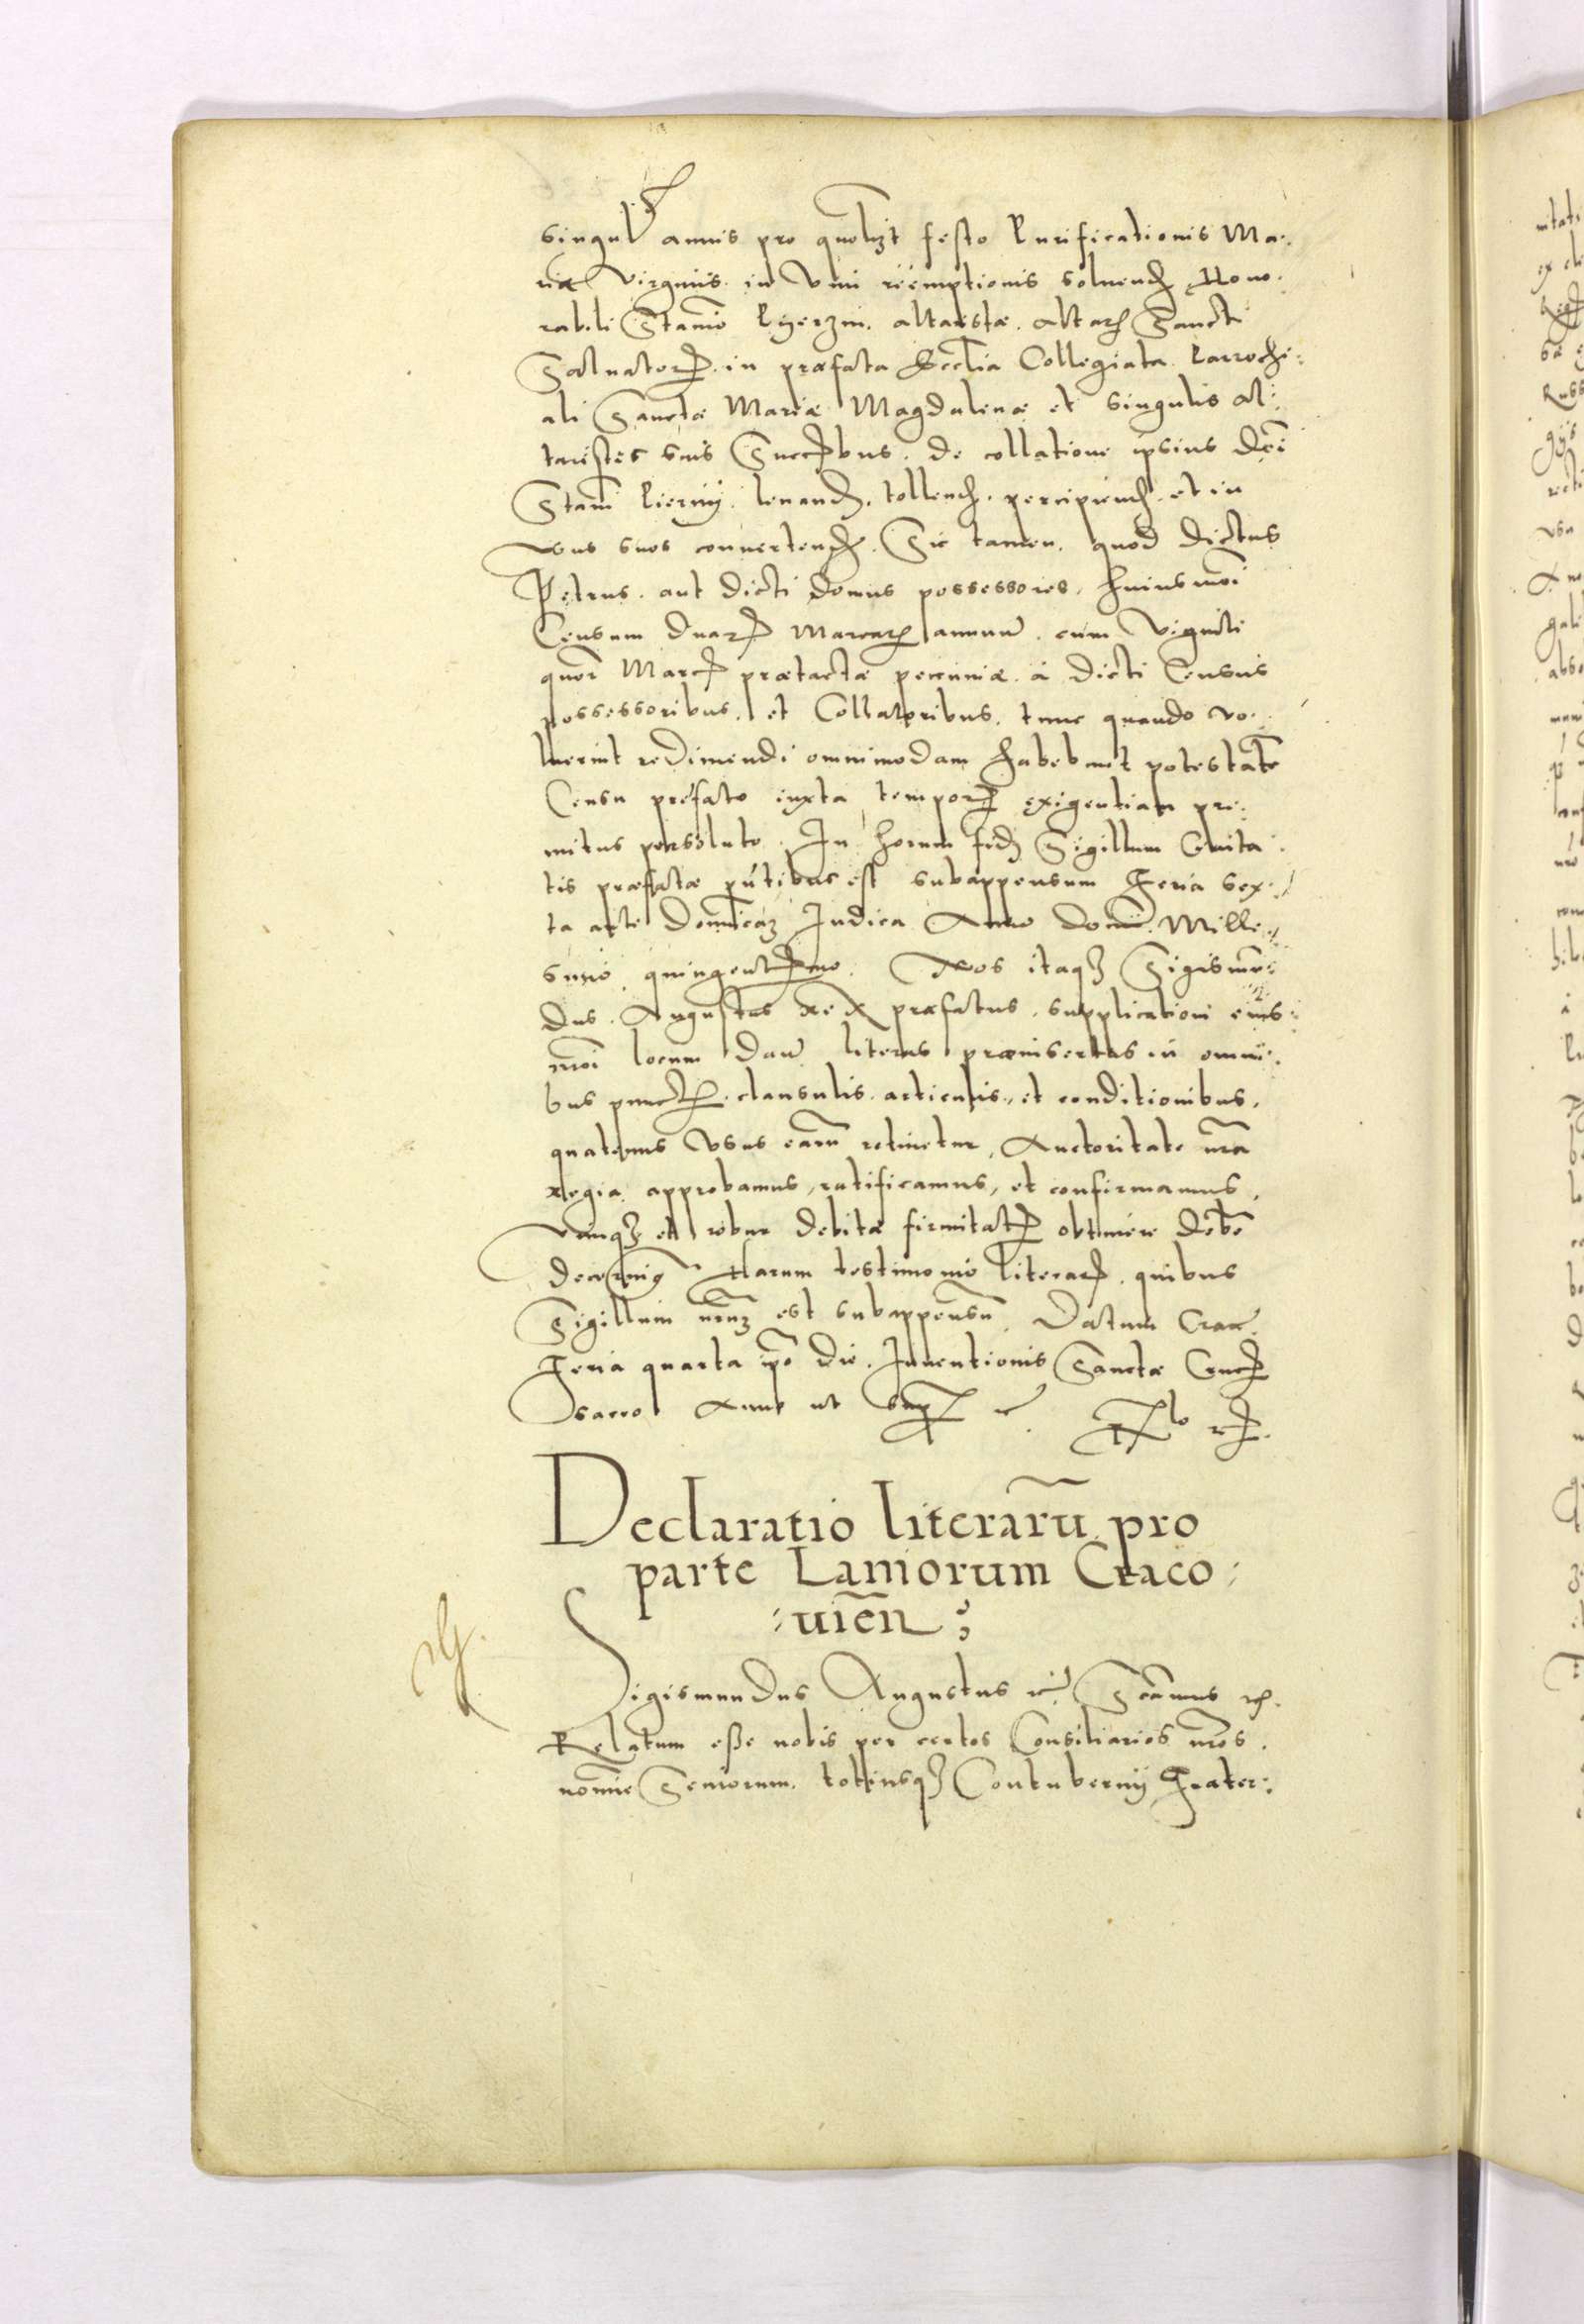 singul annis pro quolizt festo Purificationis Ma:
riæ Virginis in Vim reemptionis soluend Hono:
rabili Stanō altaristæ. Altar Sancti
Saluator in præfata Ecclia Collegiata Parrochi:
ali Sanctæ Mariæ Magdalenæ et singulis Al:
taristis suis Succbus. de collatione ipsius Dci
Stani leuand. tollend. percipiend. et in
vsus suos conuertend. Sic tamen. quod dictus
Petrus. aut dicti domus possessores. huiusmoi
Censum duar Marcar annuum. cum Viginti
quor Marc prætactæ pecuniæ. à dicti Census
possessoribus. et Collatoribus. tunc quando vo:
luerint redimendi omnimodam habebunt potestatē
Censu prefato iuxta tempor exigentiam pre:
mitus persoluto. In horum fid Sigillum Ciuita:
tis præfatæ pntibus est subappensum Feria sex:
ta ante Domīcaz Iudica Anno domi. Mille:
simō quingentmo. Nos itaqz Sigismū:
dus. Augustus Rex præfatus. supplicationi eius:
moi locum dan literas præinsertas in omni:
bus punct. clausulis. articulis, et conditionibus,
quatenus vsus earū retinetur, Auctoritate nra
regia approbamus, ratificamus, et confirmamus.
vimqz et robur debitæ firmitat obtinere debē
decernig Harum testimonio literar. quibus
Sigillum nrūz est subappensū. Datum Crac
Feria quarta ipō die. Inuentionis Sanctæ Cruc
sacro Anno ut sup
Declaratio literarū pro
parte Laniorum Craco:
:uiēn:
Sigismundus Augustus Scāmus
Relatum esse nobis per certos Consiliarios nros.
nomīe Seniorum. totiusqz Contubernij Frater: